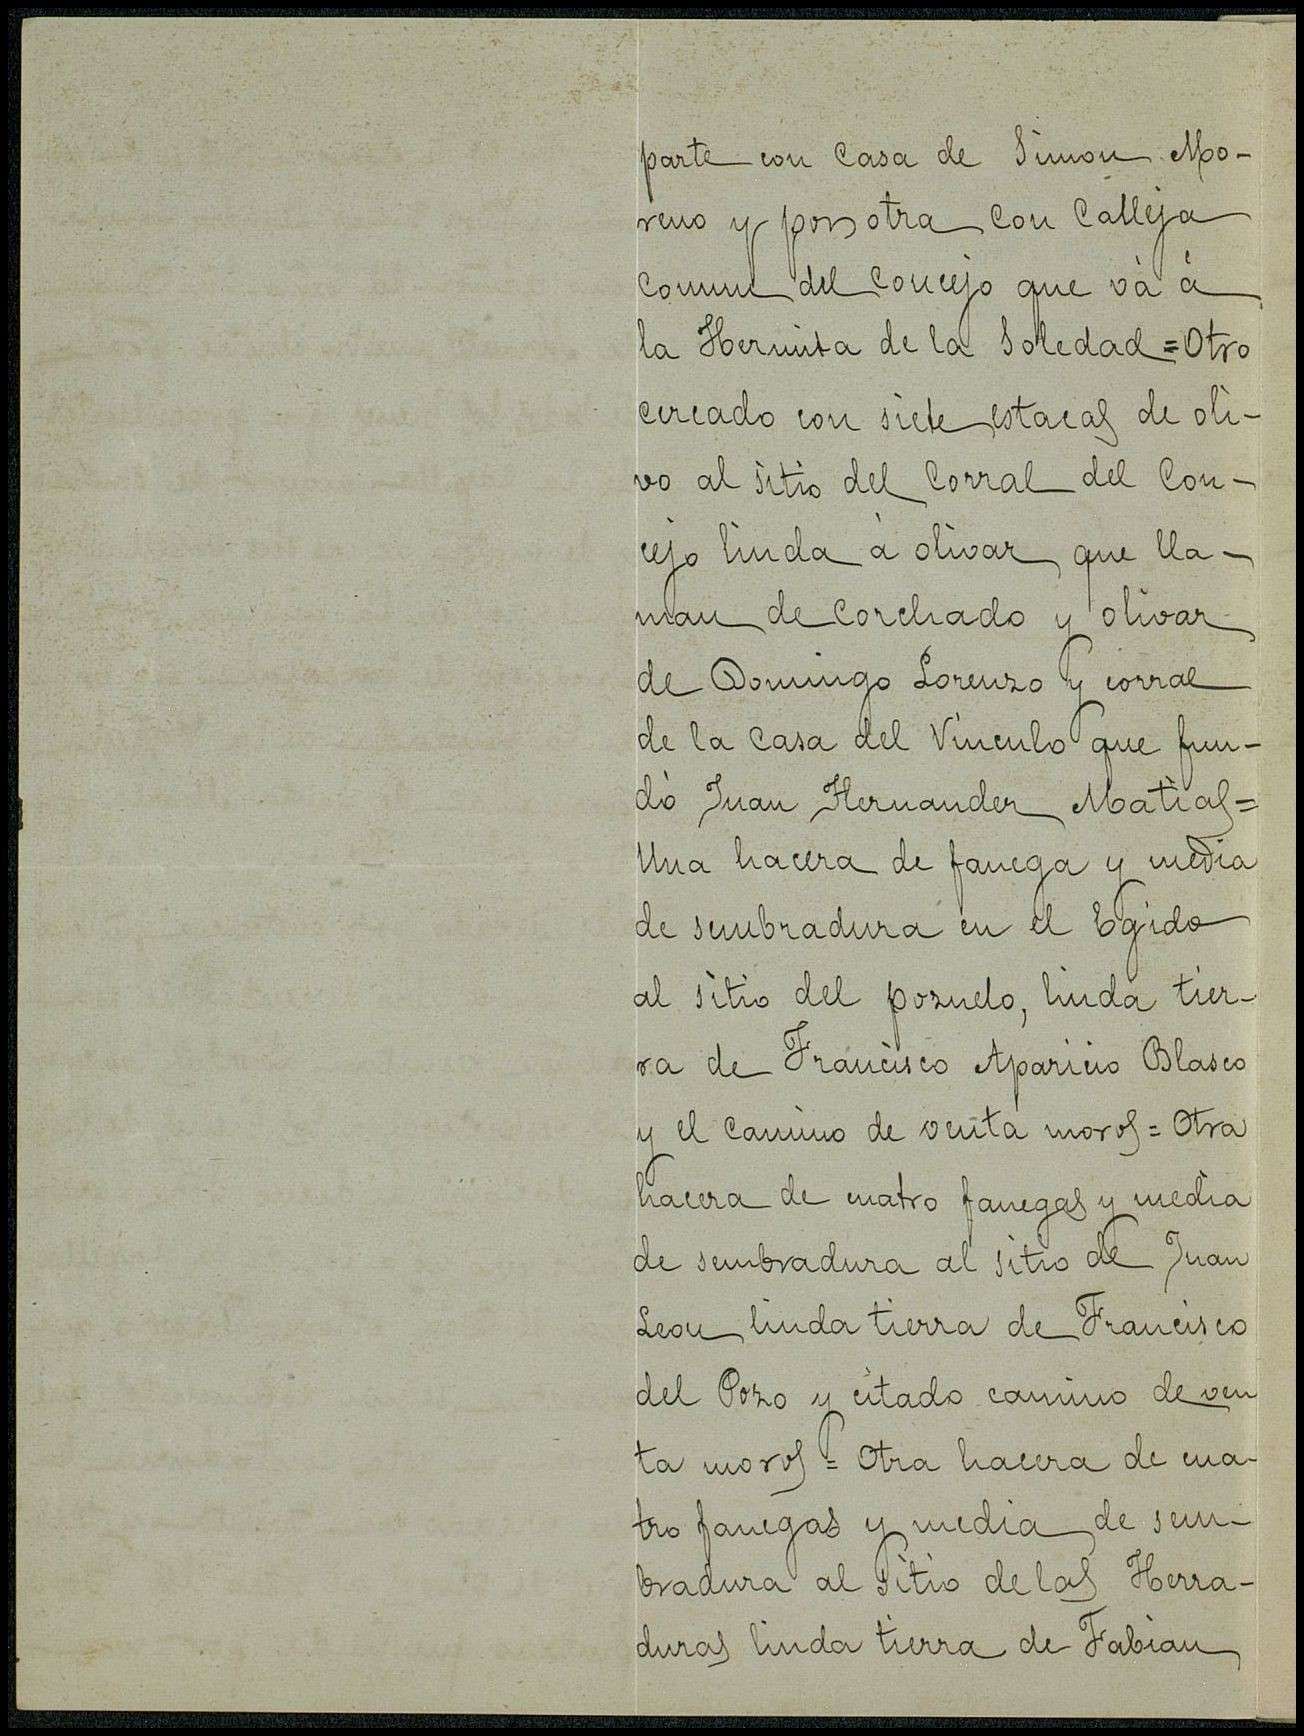 parte con Casa de Simon Mo-
reno y por otra con Calleja
Comun del Concejo que và á
la Hermita de la Soledad = Otro
cercado con siete estacas de oli-
vo al sitio del Corral del Con-
cejo linda à olivar que lla-
man de Corchado y olivar
de Domingo Lorenzo y corral
de la Casa del Vinculo que fun-
dò Juan Hernander Matias =
Una hacera de fanega y media
de sembradura en el Egido
al sitio del pozuelo, linda tier-
ra de Francisco Aparicio Blasco
y el camino de venta moros = Otra
hacera de cuatro fanegas y media
de sembradura al sitio de Juan
Leon linda tierra de Francisco
del Pozo y citado camino de ven
ta moros = Otra hacera de cua-
tro fanegas y media de sem-
bradura al sitio de las Herra-
duras linda tierra de Fabian